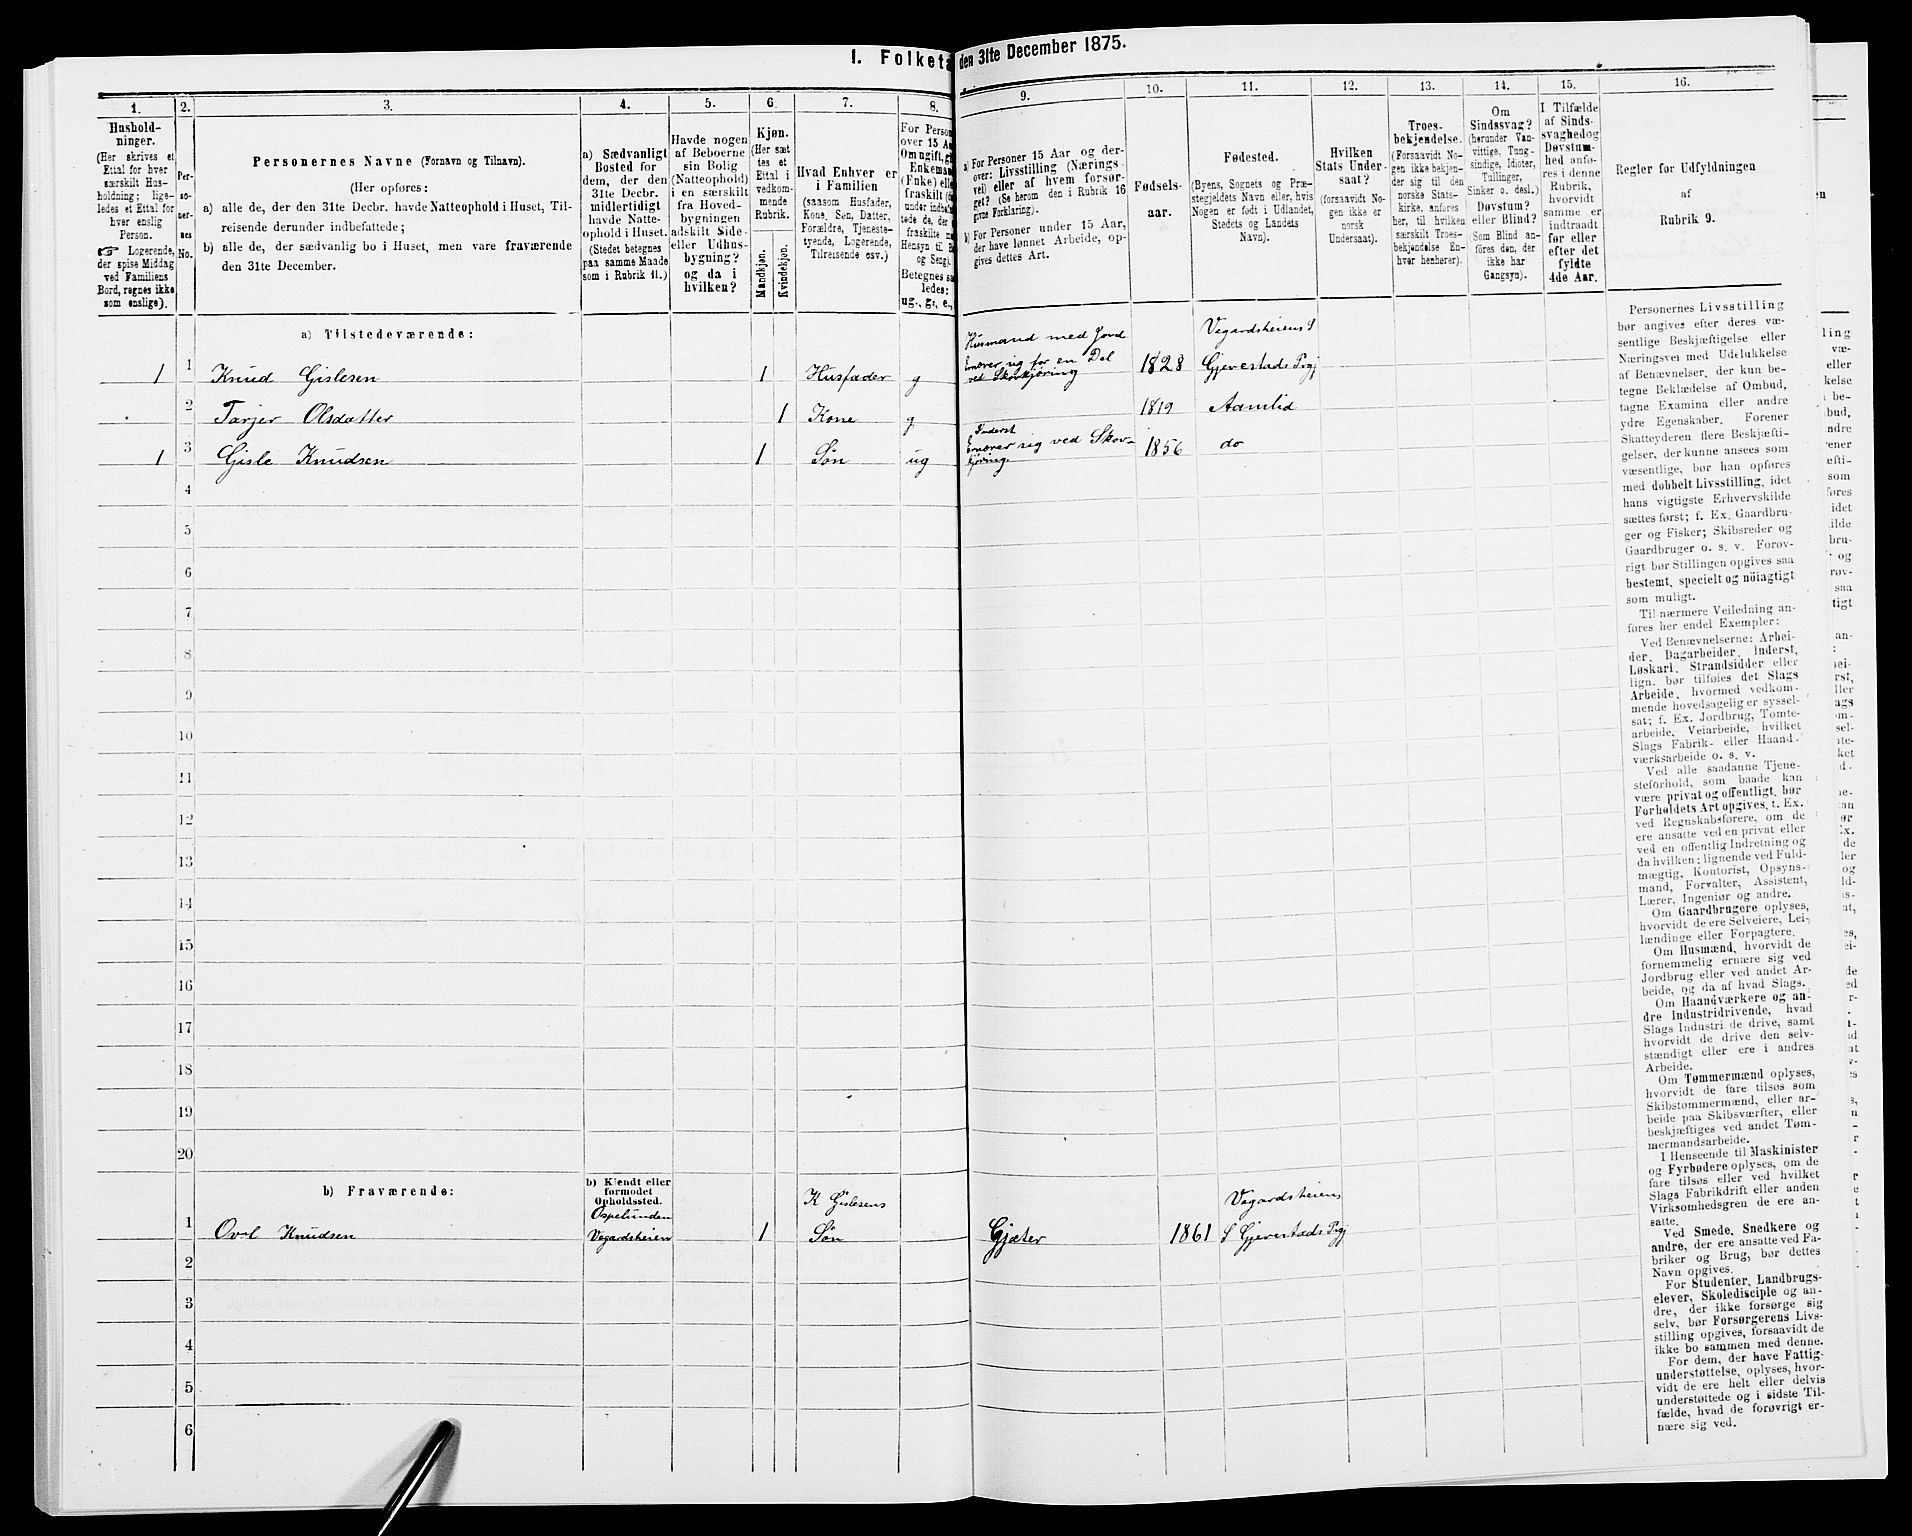 I. Folketæ
den 31te December 1875.
1.
2.
3.
4.
5.
6.
7.
8.
9.
10.
11.
12.
13.
14.
15.
16.
Hushold-
ninger.
(Her skrives et
Ettal for hver
særskilt Hus-
holdning; lige-
ledes et Ettal for
hver enslig
Person.
☞ Logerende,
der spise Middag
ved Familiens
Bord, regnes ikke
som enslige).
Per-
so-
ner-
nes
No.
Personernes Navne (Fornavn og Tilnavn).
(Her opføres:
a) alle de, der den 31te Decbr. havde Natteophold i Huset, Til-
reisende derunder indbefattede;
b) alle de, der sædvanlig bo i Huset, men vare fraværende
den 31te December.
a) Sædvanligt
Bosted for
dem, der den
31te Decbr.
midlertidigt
havde Natte-
ophold i Huset.
(Stedet betegnes
paa samme Maade
som i Rubrik 11.)
Havde nogen
af Beboerne
sin Bolig
(Natteophold)
i en særskilt
fra Hoved-
bygningen
adskilt Side-
eller Udhus-
bygning?
og da i
hvilken?
Kjøn.
(Her sæt
tes et
Ettal i
vedkom-
mende
Rubrik.
Mandkjøn.
Kvindekjøn.
Hvad Enhver er
i Familien
(saasom Husfader,
Kone, Søn, Datter,
Forældre, Tjeneste-
tyende, Logerende,
Tilreisende osv.)
For Person
over 15 Aa
Om ugift, gi
Enkema
(Enke) elle
fraskilt (
under indbe
tede de, der
fraskilte
Hensyn til B
og Seng).
Betegnes sa
ledes:
ug., g., e.,
a) For Personer 15 Aar og der-
over: Livsstilling (Nærings-
vei) eller af hvem forsør-
get? (Se herom den i Rubrik 16
givne Forklaring).
b) For Personer under 15 Aar,
der have lønnet Arbeide, op-
gives dettes Art.
Fødsels-
aar.
Fødested.
(Byens, Sognets og Præ-
stegjeldets Navn eller, hvis
Nogen er født i Udlandet,
Stedets og Landets
Navn).
Hvilken
Stats Under-
saat?
(forsaavidt No-
gen ikke er
norsk
Undersaat).
Troes-
bekjendelse.
(Forsaavidt No-
gen ikke bekjen-
der sig til den
norske Stats-
kirke, anføres
her, til hvilken
særskilt Troes-
bekjendelse En-
hver henhører).
Om
Sindssvag?
(herunder Van-
vittige, Tung-
sindige, Idioter,
Tullinger,
Sinker o. desl.)
Døvstum?
eller Blind?
(Som Blind an-
føres den, der
ikke har
Gangsyn).
I Tilfælde
af Sinds-
svaghed og
Døvstum-
hed anfø-
res i denne
Rubrik,
hvorvidt
samme er
indtraadt
før eller
efter det
fyldte
4de Aar.
Regler for Udfyldningen
af
Rubrik 9.
a) Tilstedeværende:
1 1 Knud Gislesen 1 Husfader g Husmand med Jord
Ernærer sig for en Del
ved Skovkjøring 1828 Vegardsheiens S
Gjerestads Prgj
2 Tarjer Olsdatter 1 Kone g 1819 Aamlid
1 3 Gisle Knudsen 1 Søn ug Inderst
Ernærer sig ved Skov-
kjøring 1856 do
4
5
6
7
8
9
10
11
12
13
14
15
16
17
18
19
20
b) Fraværende:
b) Kjendt eller
formodet
Opholdssted.
1 Ovel Knudsen Ospelunden
Vegardsheien 1 K Gislesens
Søn Gjæter 1861 Vegardsheiens
S Gjerestads Prgj
2
3
4
5
6
Personernes Livsstilling
bør angives efter deres væ-
sentlige Beskjæftigelse eller
Næringsvei med Udelukkelse
af Benævnelser, der kun be-
tegne Beklædelse af Ombud,
tagne Examina eller andre
ydre Egenskaber. Forener
Skatteyderen flere Beskjæfti-
gelser, der kunne ansees som
væsentlige, bør han opføres
med dobbelt Livsstilling, idet
hans vigtigste Erhvervskilde
sættes først; f. Ex. Gaardbru-
ger og Fisker; Skibsreder og
Gaardbruger o. s. v. Forøv-
rigt bør Stillingen opgives saa
bestemt, specielt og nöiagtigt
som muligt.
Til nærmere Veiledning an-
føres her endel Exempler:
Ved Benævnelserne: Arbei-
der, Dagarbeider, Inderst,
Løskarl, Strandsidder eller
lign. bør tilføies det Slags
Arbeide, hvormed vedkom-
mende hovedsagelig er syssel-
sat; f. Ex. Jordbrug, Tomte-
arbeide, Veiarbeide, hvilket
Slags Fabrik- eller Haand-
værksarbeide o. s. v.
Ved alle saadanne Tjene-
steforhold, som baade kan
være privat og offentligt, bør
Forholdets Art opgives, t. Ex.
ved Regnskabsførere, om de
ere ansatte ved en privat eller
ved en offentlig Indretning og
da hvilken; lignende ved Fuld-
mægtig, Kontorist, Opsyns-
mand, Forvalter, Assistent,
Lærer, Ingeniør og andre.
Om Gaardbrugere oplyses,
hvorvidt de ere Selveiere, Lei-
lændinge eller Forpagtere.
Om Husmænd, hvorvidt de
fornemmelig ernære sig ved
Jordbrug eller ved andet Ar-
beide, og da af hvad Slags.
Om Haandværkere og an-
dre Industridrivende, hvad
Slags Industri de drive, samt
hvorvidt de drive den selv-
stændigt eller ere i andres
Arbeide.
Om Tømmermænd oplyses,
hvorvidt de fare tilsøs som
Skibstømmermænd, eller ar-
beide paa Skibsværfter, eller
beskjæftiges ved andet Tøm-
mermandsarbeide.
I Henseende til Maskinister
og Fyrbødere oplyses, om de
fare tilsøs eller ved hvilket
Slags Fabrikdrift eller anden
Virksomhedsgren de ere an-
satte.
Ved Smede, Snedkere og
andre, der ere ansatte ved Fa-
briker og Brug, bør dettes
Navn opgives.
For Studenter, Landbrugs-
elever, Skoledisciple og an-
dre, der ikke forsørge sig
selv, bør Forsørgerens Livs-
stilling opgives, forsaavidt de
ikke bo sammen med denne.
For dem, der have Fattig-
understøttelse, oplyses, hvor-
vidt de ere helt eller delvis
understøttede og i sidste Til-
fælde, hvad de forøvrigt er-
nære sig ved.